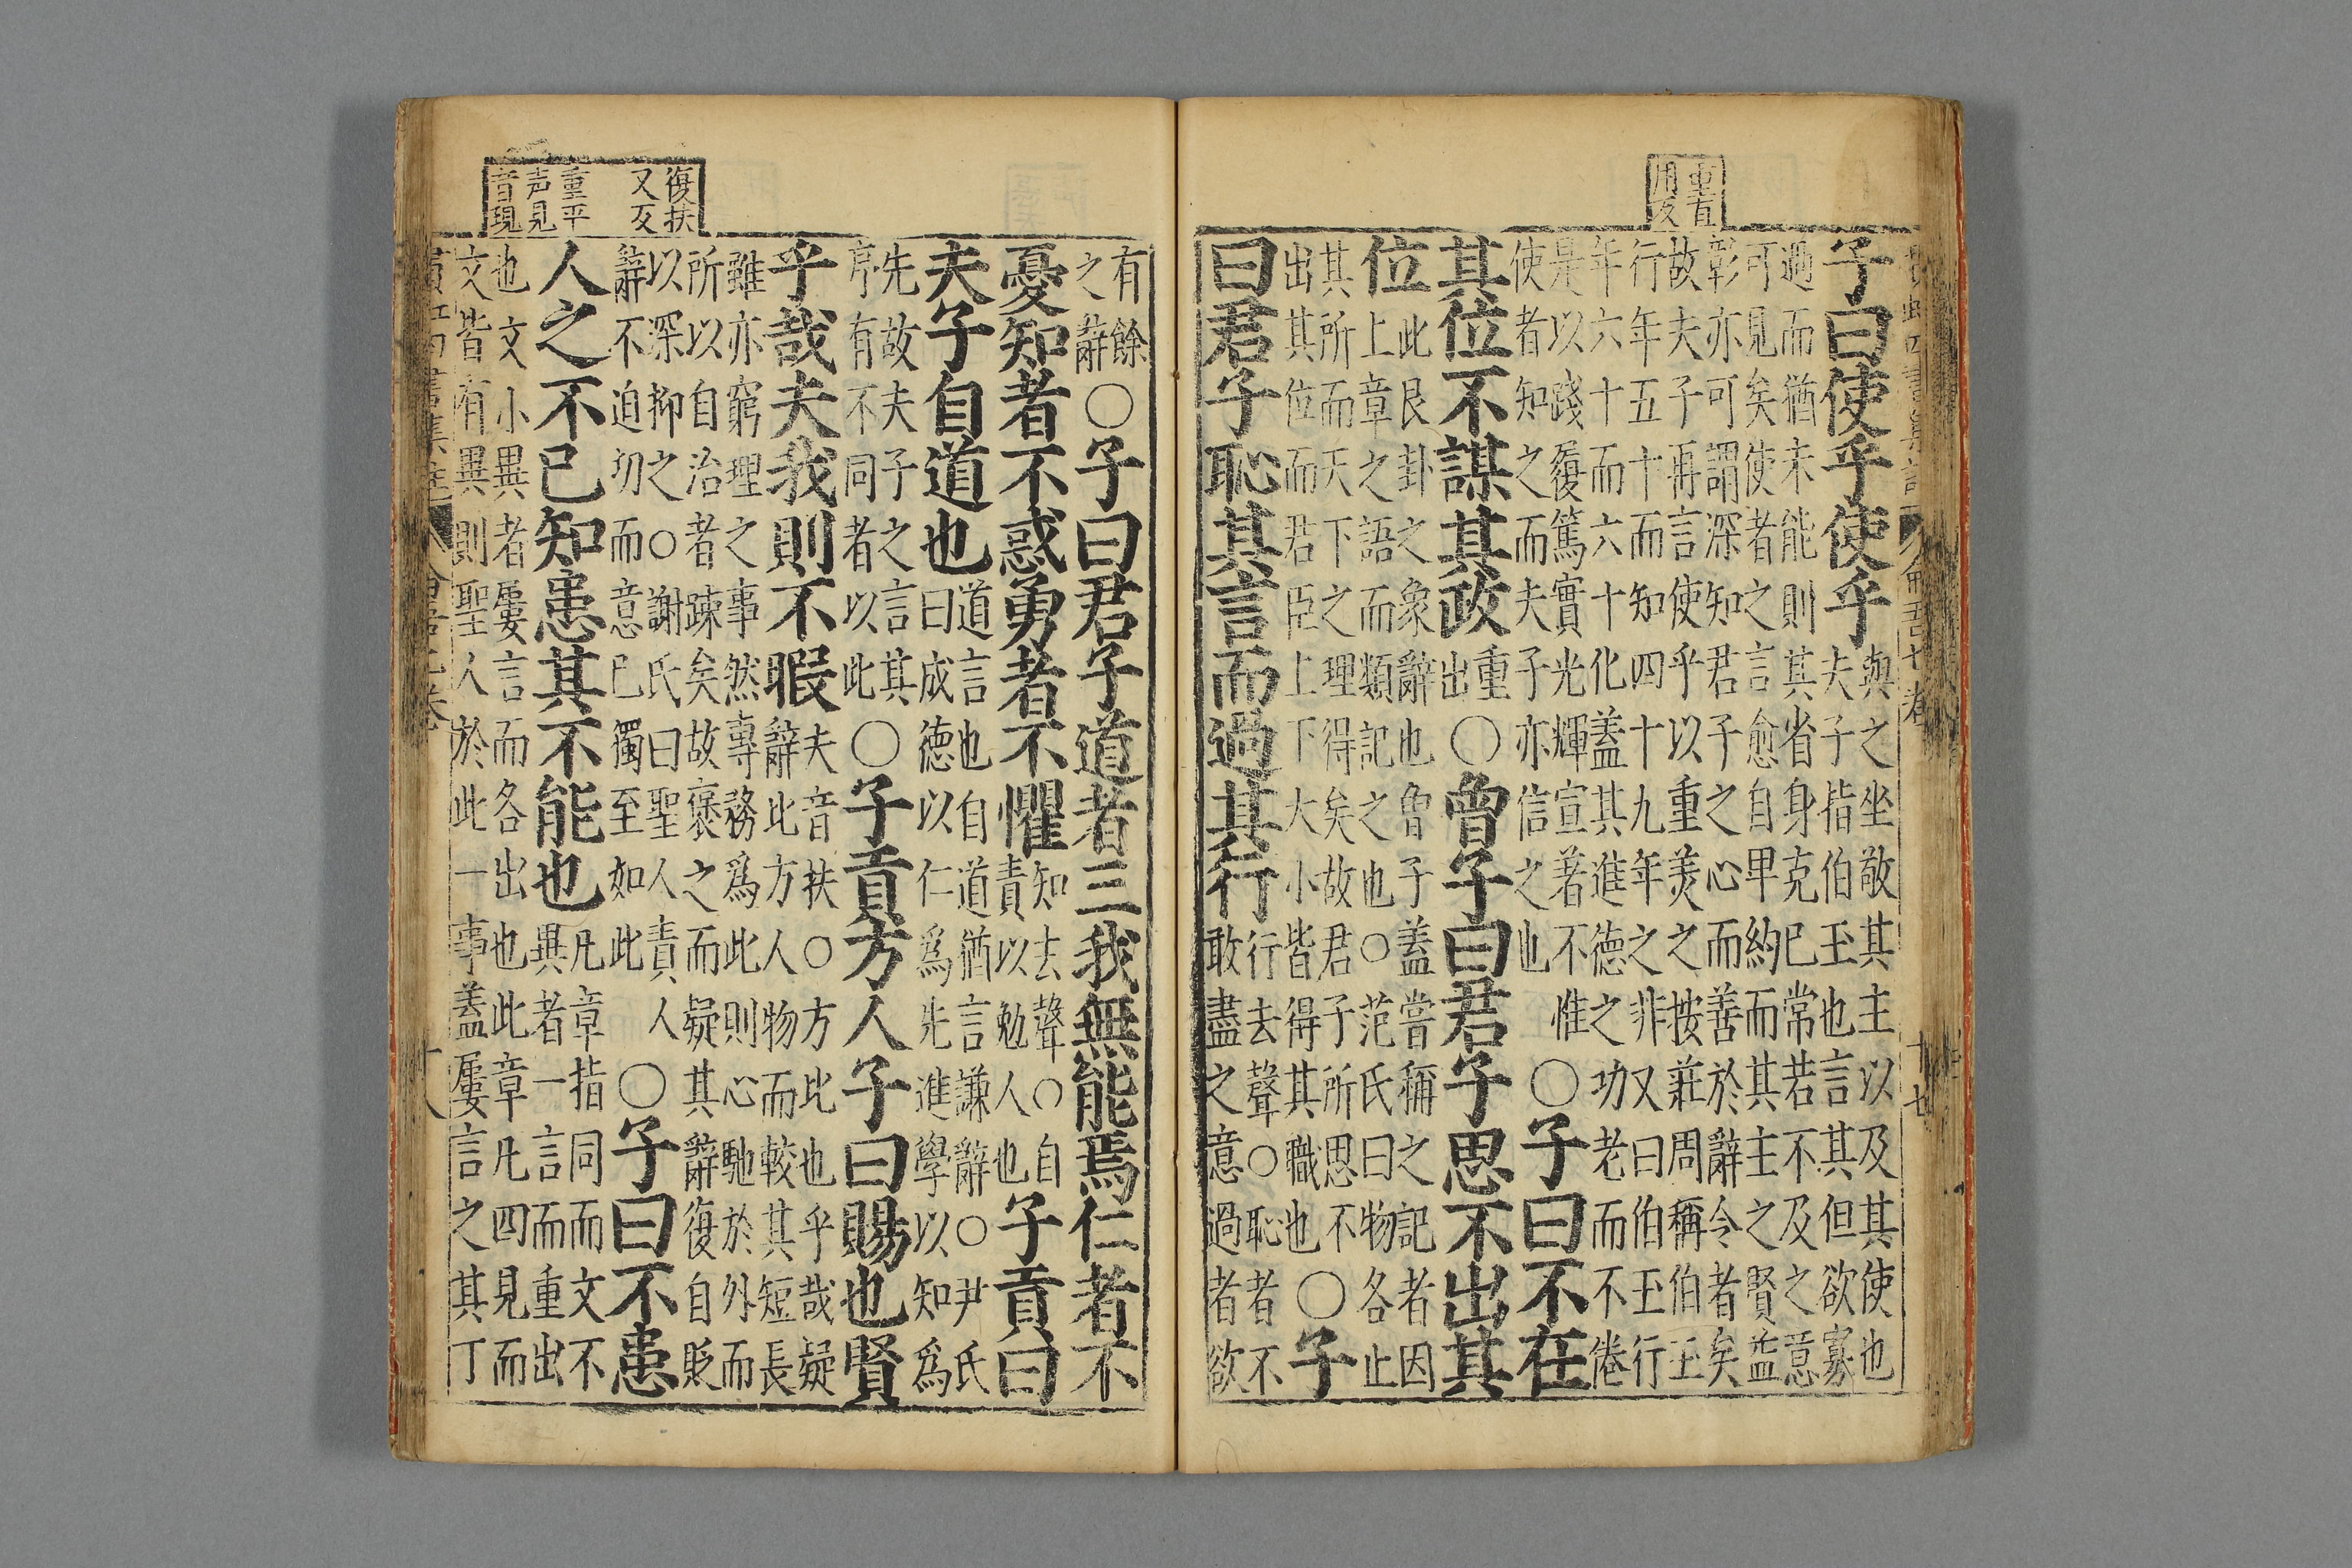 重直
用反
子曰使乎使乎
與之坐敬其主以及其使也
夫子指伯玉也言其但欲寡
過而猶未能則其省身克己常若不及之意
可見矣使者之言愈自卑約而其主之賢益
彰亦可謂深知君子之心而善於辭令者矣
故夫子再言使乎以重美之按莊周稱伯玉
行年五十而知四十九年之非又曰伯玉行
年六十而六十化蓋其進德之功老而不倦
是以踐履篤實光輝宣著不惟
使者知之而夫子亦信之也
○子曰不在
其位不謀其政
重
出
○曾子曰君子思不出其
位
此艮卦之象辭也曾子蓋嘗稱之記者因
上章之語而類記之也○范氏曰物各止
其所而天下之理得矣故君子所思不
出其位而君臣上下大小皆得其職也
○子
曰君子恥其言而過其行
行去聲○恥者不
敢盡之意過者欲
復扶
又反
重平
声見
音現
有餘
之辭
○子曰君子道者三我無能焉仁者不
憂知者不惑勇者不懼
知去聲○自
責以勉人也
子貢曰
夫子自道也
道言也自道猶言謙辭○尹氏
曰成德以仁爲先進學以知爲
先故夫子之言其
序有不同者以此
○子貢方人子曰賜也賢
乎哉夫我則不暇
夫音扶○方比也乎哉疑
辭比方人物而較其短長
雖亦窮理之事然專務爲此則心馳於外而
所以自治者疎矣故褒之而疑其辭復自貶
以深抑之○謝氏曰聖人責人
辭不迫切而意已獨至如此
○子曰不患
人之不己知患其不能也
凡章指同而文不
異者一言而重出
也文小異者屢言而各出也此章凡四見而
文皆有異則聖人於此一事蓋屢言之其丁